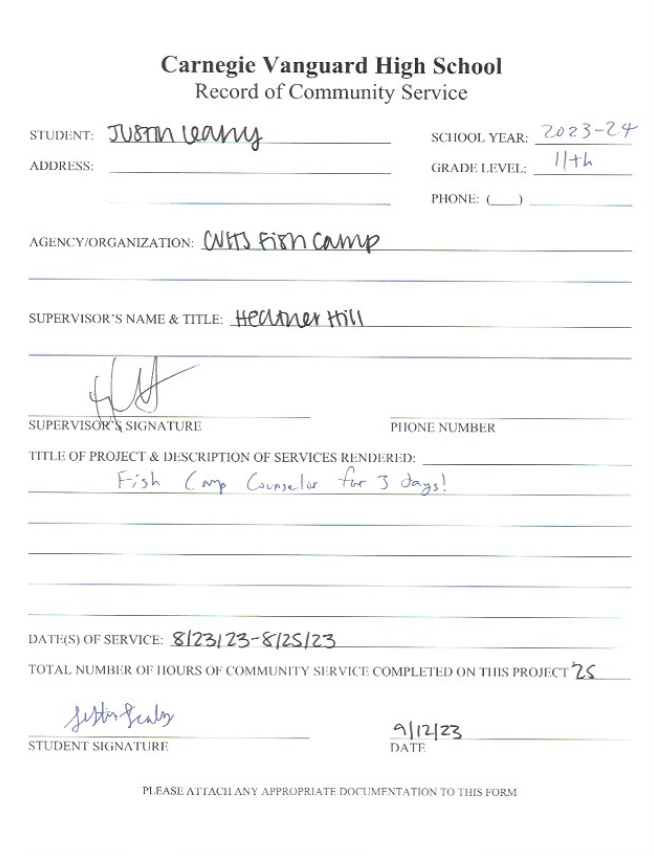 Carnegie Vanguard High School
Record of Community Service
STUDENT: Justin Leahy SCHOOL YEAR: 2023-24
ADDRESS: GRADE LEVEL: 11th
PHONE: (___)
AGENCY/ORGANIZATION: CVHS Fish Camp
SUPERVISOR'S NAME & TITLE: Heather Hill
SUPERVISOR'S SIGNATURE PHONE NUMBER
TITLE OF PROJECT & DESCRIPTION OF SERVICES RENDERED:
Fish Camp Counselor for 3 days!
DATE(S) OF SERVICE: 8/23/23-8/25/23
TOTAL NUMBER OF HOURS OF COMMUNITY SERVICE COMPLETED ON THIS PROJECT 25
9/12/23
STUDENT SIGNATURE DATE
PLEASE ATTACH ANY APPROPRIATE DOCUMENTATION TO THIS FORM